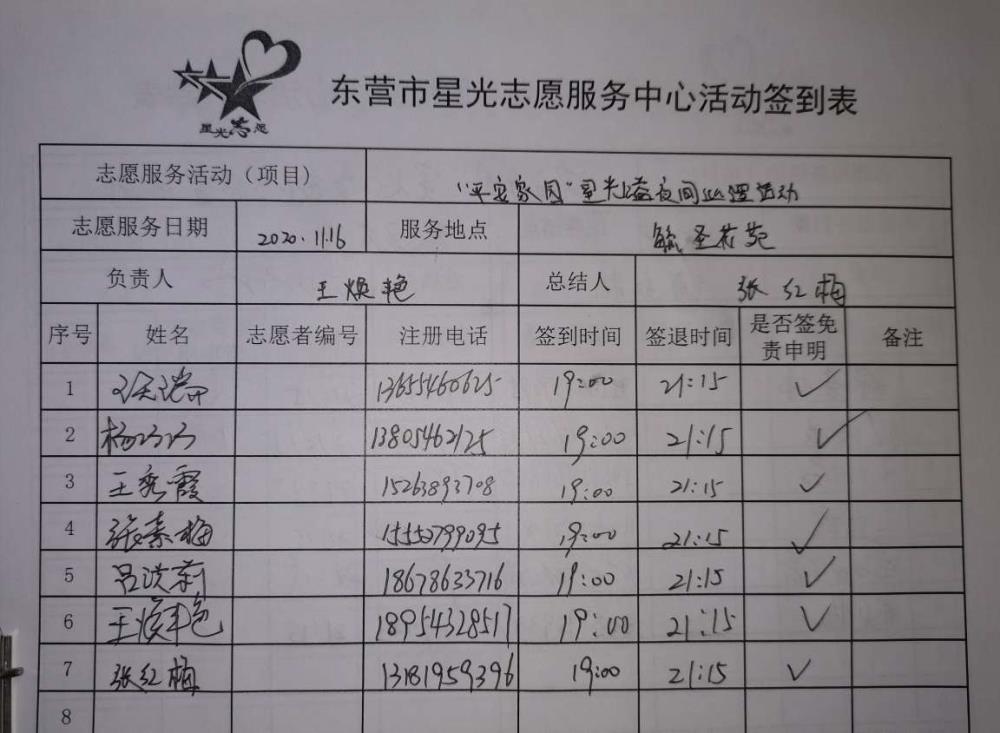 星光志愿
东营市星光志愿服务中心活动签到表
志愿服务活动（项目） "平安家园"星光益夜间巡逻活动
志愿服务日期 2020.11.16 服务地点 毓圣花苑
负责人 王焕艳 总结人 张红梅
序号 姓名 志愿者编号 注册电话 签到时间 签退时间 是否签免责申明 备注
1 13655460625 19:00 21:15 ✓
2 杨巧巧 13805462125 19:00 21:15 ✓
3 王秀霞 15263893708 19:00 21:15 ✓
4 张素梅 15550799095 19:00 21:15 ✓
5 吕洪莉 18678633716 19:00 21:15 ✓
6 王焕艳 18954328517 19:00 21:15 ✓
7 张红梅 13181959396 19:00 21:15 ✓
8